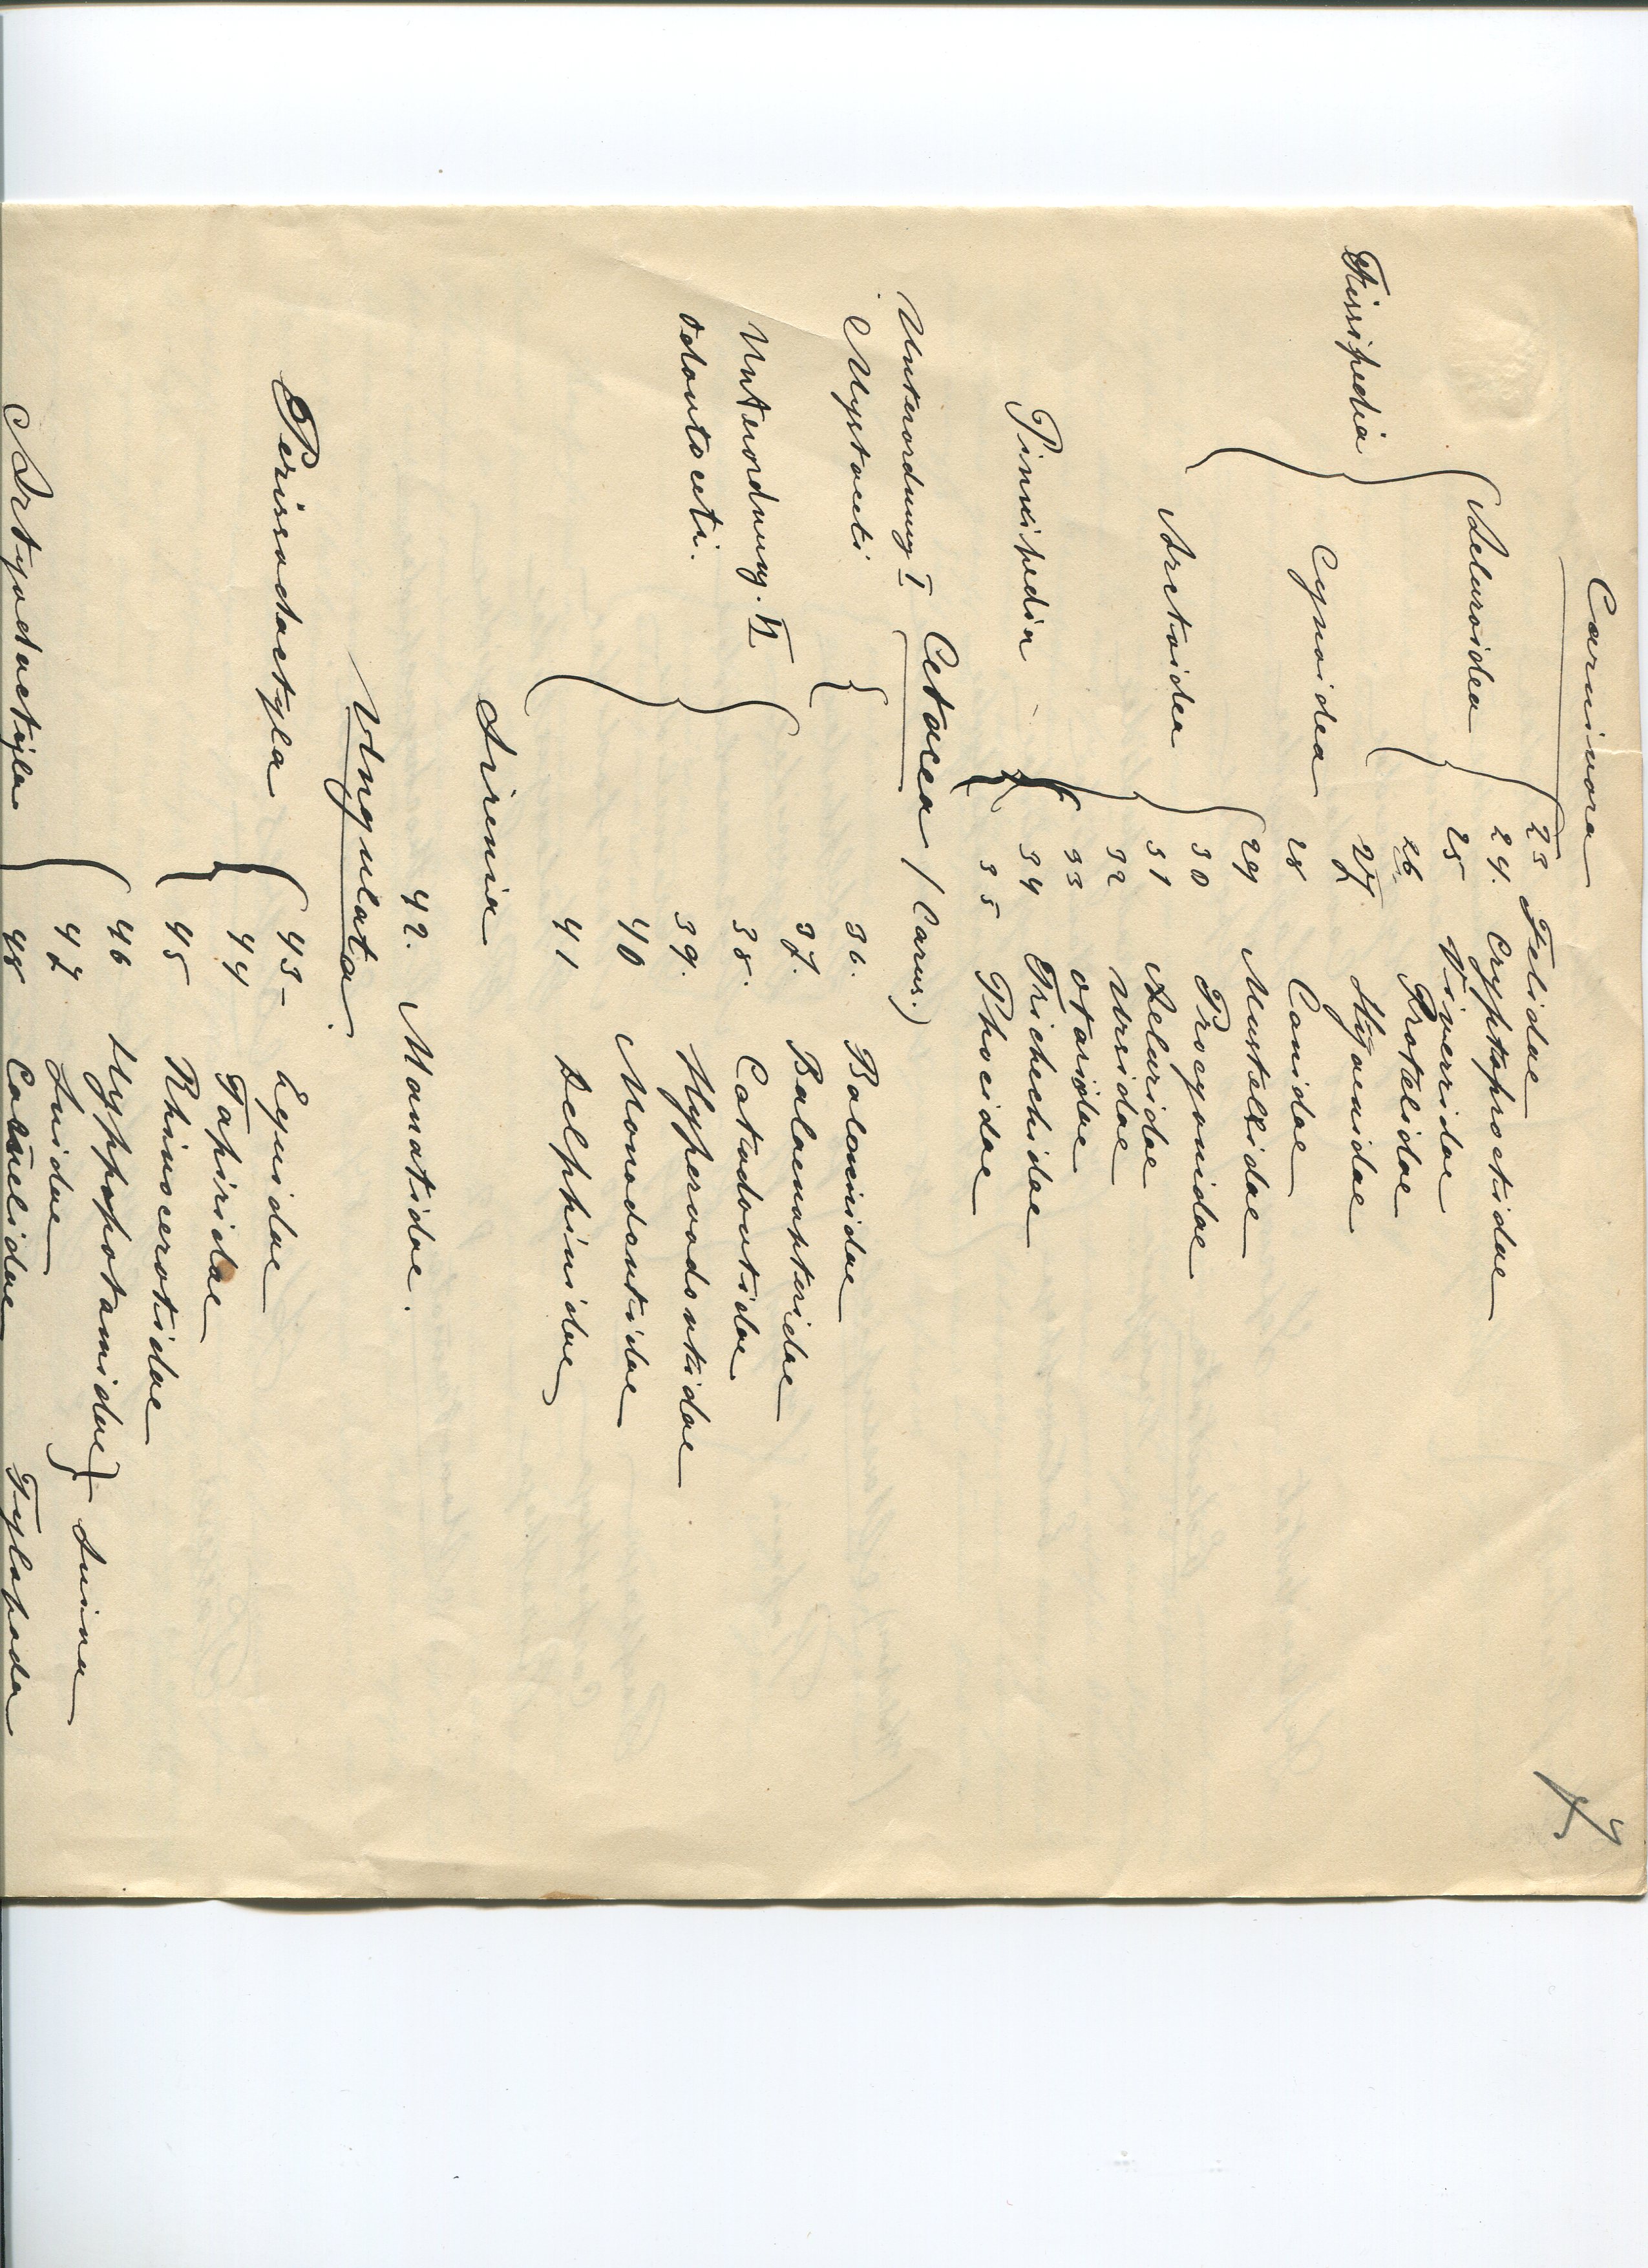 4.
Carnivora
23 Felidae
Aeluroidea 24. Cryptoproctidae
25 Viverridae
26 Protelidae
Fissipedia 27. Hyaenidae
Cynoidea 28 Canidae
29 Mustelidae
30 Procyonidae
Arctoidea 31 Aeluridae
32 Ursidae
33 Otaridae
Pinnipedia 34 Trichechidae
35 Phocidae
Cetacea / Carus.)
Unterordnung I
Mystaceti 36. Balaenidae
37. Balaenopteridae
Unterordnung. II 38. Catodontidae
Odontoceti. 39. Hyperoodontidae
40 Monodontidae
41 Delphinidae
Sirenia
42. Manatidae.
Ungulata.
Perissodactyla 43- Equidae
44 Tapiridae
45 Rhinocerotidae
46 Hyppopotamidae } Suina
47 Suidae
Artyodactyla 48 Camelidae Tylopoda